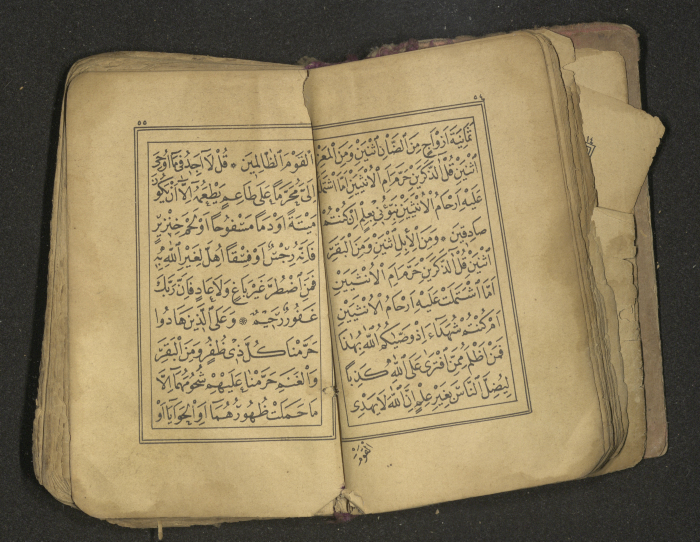 ٥٤
ثَمَانِيَةَ اَزْوَاجٍ مِنَ الضَّأْنِ اثْنَيْنِ وَمِنَ الْمَعْزِ
اثْنَيْنِ قُلْ آلذَّكَرَيْنِ حَرَّمَ اَمِ الْاُنْثَيَيْنِ اَمَّا اشْتَمَلَتْ
عَلَيْهِ اَرْحَامُ الْاُنْثَيَيْنِ نَبِّؤُنِي بِعِلْمٍ اِنْ كُنْتُمْ
صَادِقِينَ * وَمِنَ الْاِبِلِ اثْنَيْنِ وَمِنَ الْبَقَرِ
اثْنَيْنِ قُلْ آلذَّكَرَيْنِ حَرَّمَ اَمِ الْاُنْثَيَيْنِ
اَمَّا اشْتَمَلَتْ عَلَيْهِ اَرْحَامُ الْاُنْثَيَيْنِ
اَمْ كُنْتُمْ شُهَدَاءَ اِذْ وَصّٰيكُمُ اللّٰهُ بِهٰذَا
فَمَنْ اَظْلَمُ مِمَّنِ افْتَرٰى عَلَى اللّٰهِ كَذِبًا
لِيُضِلَّ النَّاسَ بِغَيْرِ عِلْمٍ اِنَّ اللّٰهَ لَا يَهْدِى
الْقَوْمَ
٥٥
الْقَوْمَ الظَّالِمِينَ * قُلْ لَا اَجِدُ فِى مَا اُوحِىَ
اِلَىَّ مُحَرَّمًا عَلٰى طَاعِمٍ يَطْعَمُهُ اِلَّا اَنْ يَكُونَ
مَيْتَةً اَوْ دَمًا مَسْفُوحًا اَوْ لَحْمَ خِنْزِيرٍ
فَاِنَّهُ رِجْسٌ اَوْ فِسْقًا اُهِلَّ لِغَيْرِ اللّٰهِ بِهِ
فَمَنِ اضْطُرَّ غَيْرَ بَاغٍ وَلَا عَادٍ فَاِنَّ رَبَّكَ
غَفُورٌ رَحِيمٌ * وَعَلَى الَّذِينَ هَادُوا
حَرَّمْنَا كُلَّ ذِى ظُفُرٍ وَمِنَ الْبَقَرِ
وَالْغَنَمِ حَرَّمْنَا عَلَيْهِمْ شُحُومَهُمَا اِلَّا
مَا حَمَلَتْ ظُهُورُهُمَا اَوِ الْحَوَايَا اَوْ